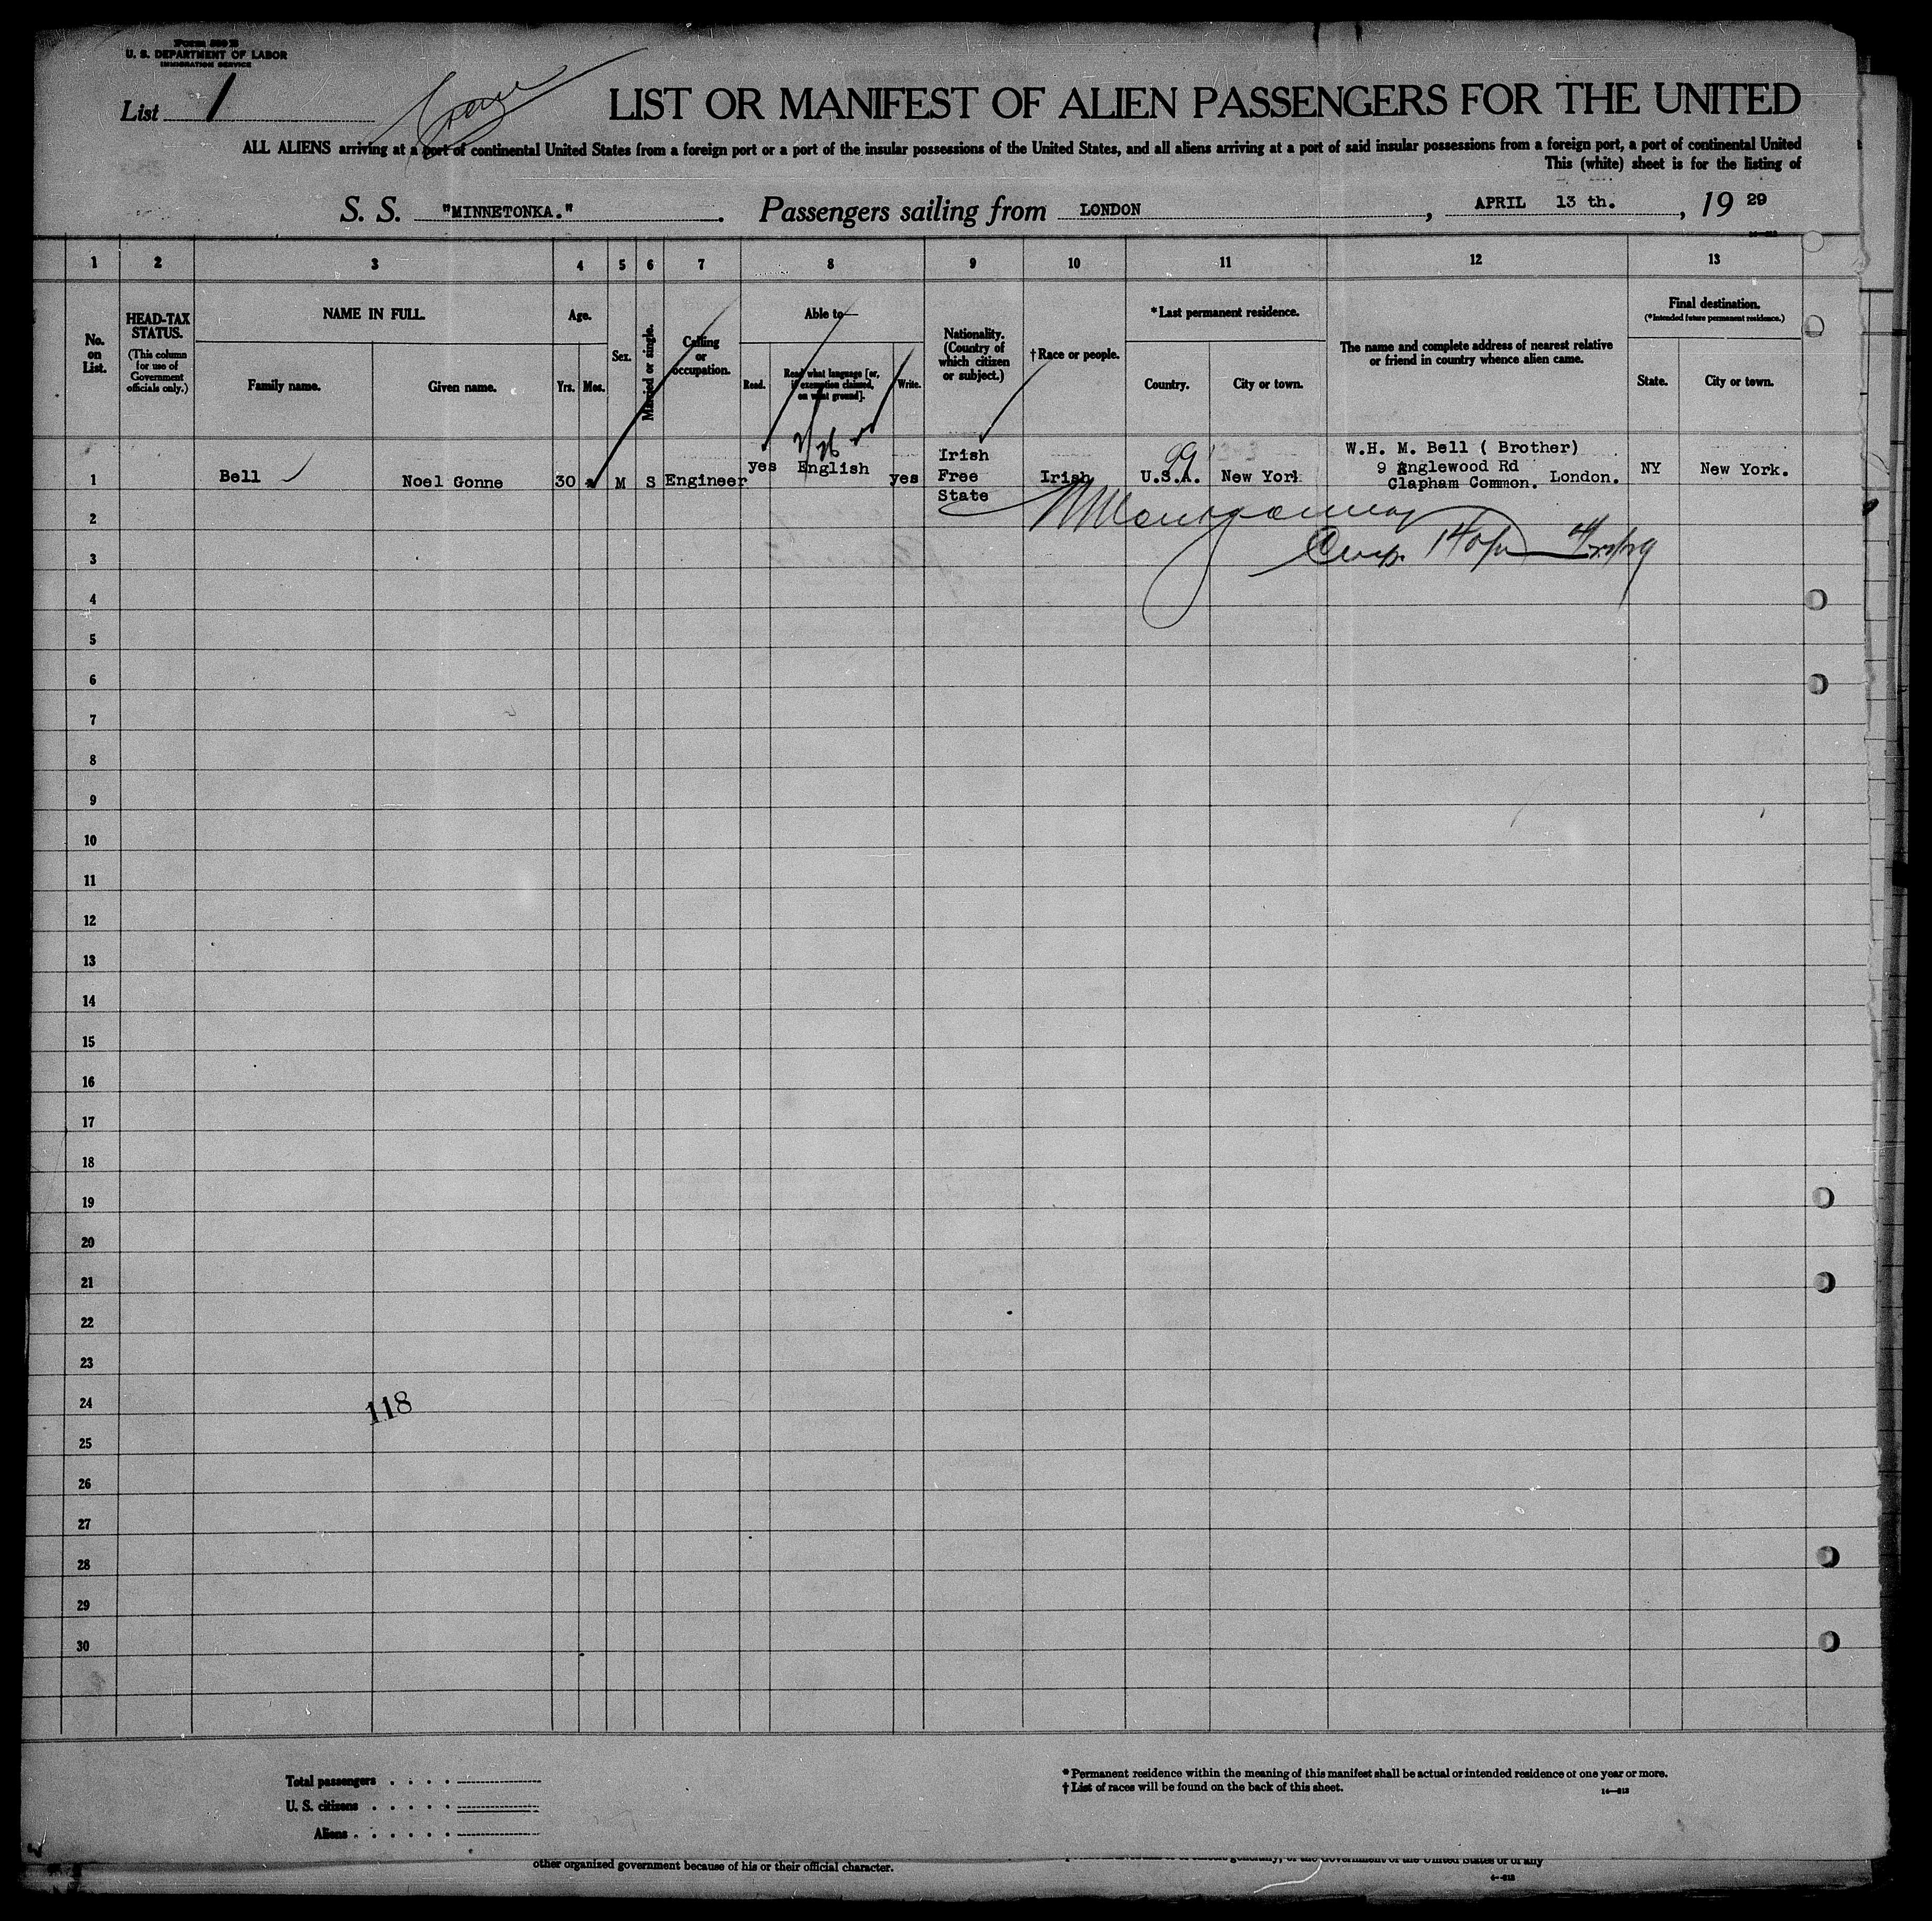 Form 500 B
U. S. DEPARTMENT OF LABOR
IMMIGRATION SERVICE
List 1
LIST OR MANIFEST OF ALIEN PASSENGERS FOR THE UNITED
ALL ALIENS arriving at a port of continental United States from a foreign port or a port of the insular possessions of the United States, and all aliens arriving at a port of said insular possessions from a foreign port, a port of continental United
This (white) sheet is for the listing of
S. S. "MINNETONKA." Passengers sailing from LONDON, APRIL 13 th., 19 29
1 2 3 4 5 6 7 8 9 10 11 12 13
No. on List.
HEAD-TAX STATUS.
(This column for use of Government officials only.)
NAME IN FULL
Family name.
Given name.
Age.
Yrs. Mos.
Sex.
Married or single.
Calling or occupation.
Able to—
Read.
Read what language [or, if exemption claimed, on what ground].
Write.
Nationality. (Country of which citizen or subject.)
†Race or people.
*Last permanent residence.
Country.
City or town.
The name and complete address of nearest relative or friend in country whence alien came.
Final destination.
(*Intended future permanent residence.)
State.
City or town.
1 Bell Noel Gonne 30 M S Engineer yes English yes Irish Free State Irish U.S.A. New York W.H. M. Bell ( Brother)
9 Englewood Rd
Clapham Common. London. NY New York.
99
2
3
4
5
6
7
8
9
10
11
12
13
14
15
16
17
18
19
20
21
22
23
24
118
25
26
27
28
29
30
Total passengers . . . .
U. S. citizens . . . . .
Aliens . . . . . .
* Permanent residence within the meaning of this manifest shall be actual or intended residence of one year or more.
† List of races will be found on the back of this sheet.
other organized government because of his or their official character.